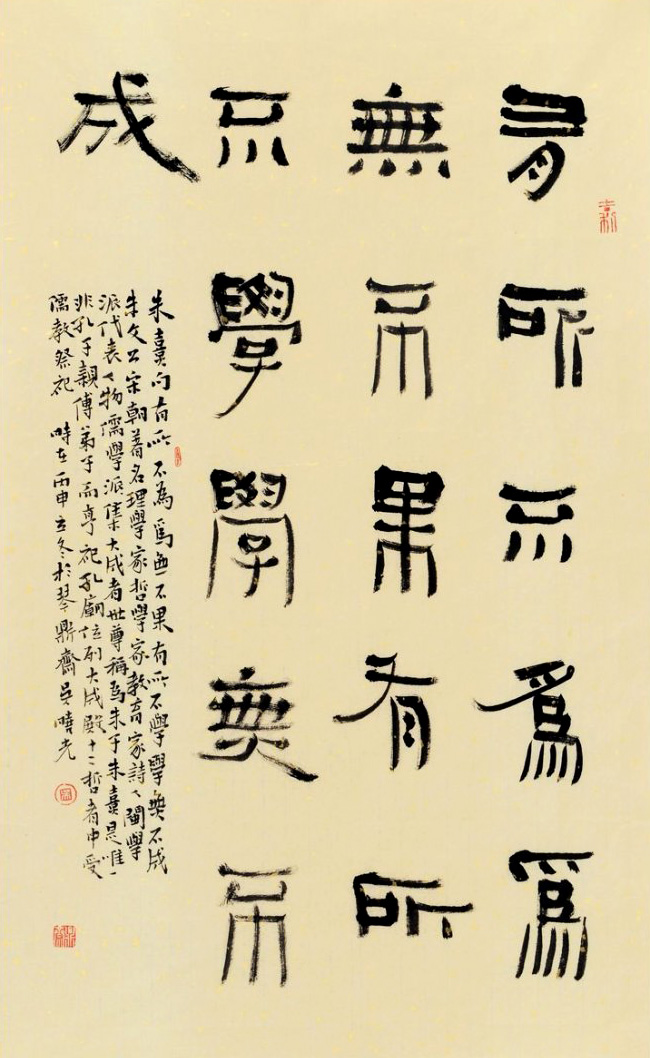 有所不爲爲
無不果有所
不學學無不
成
朱熹句有所不為爲無不果有所不學學無不成
朱文公宋朝著名理學家哲學家教育家詩人閩學
派代表人物儒學派集大成者世尊稱爲朱子朱熹是唯一
非孔子親傳弟子而享祀孔廟位列大成殿十二哲者中受
儒教祭祀 時在丙申立冬於琴鼎齋吳曉光